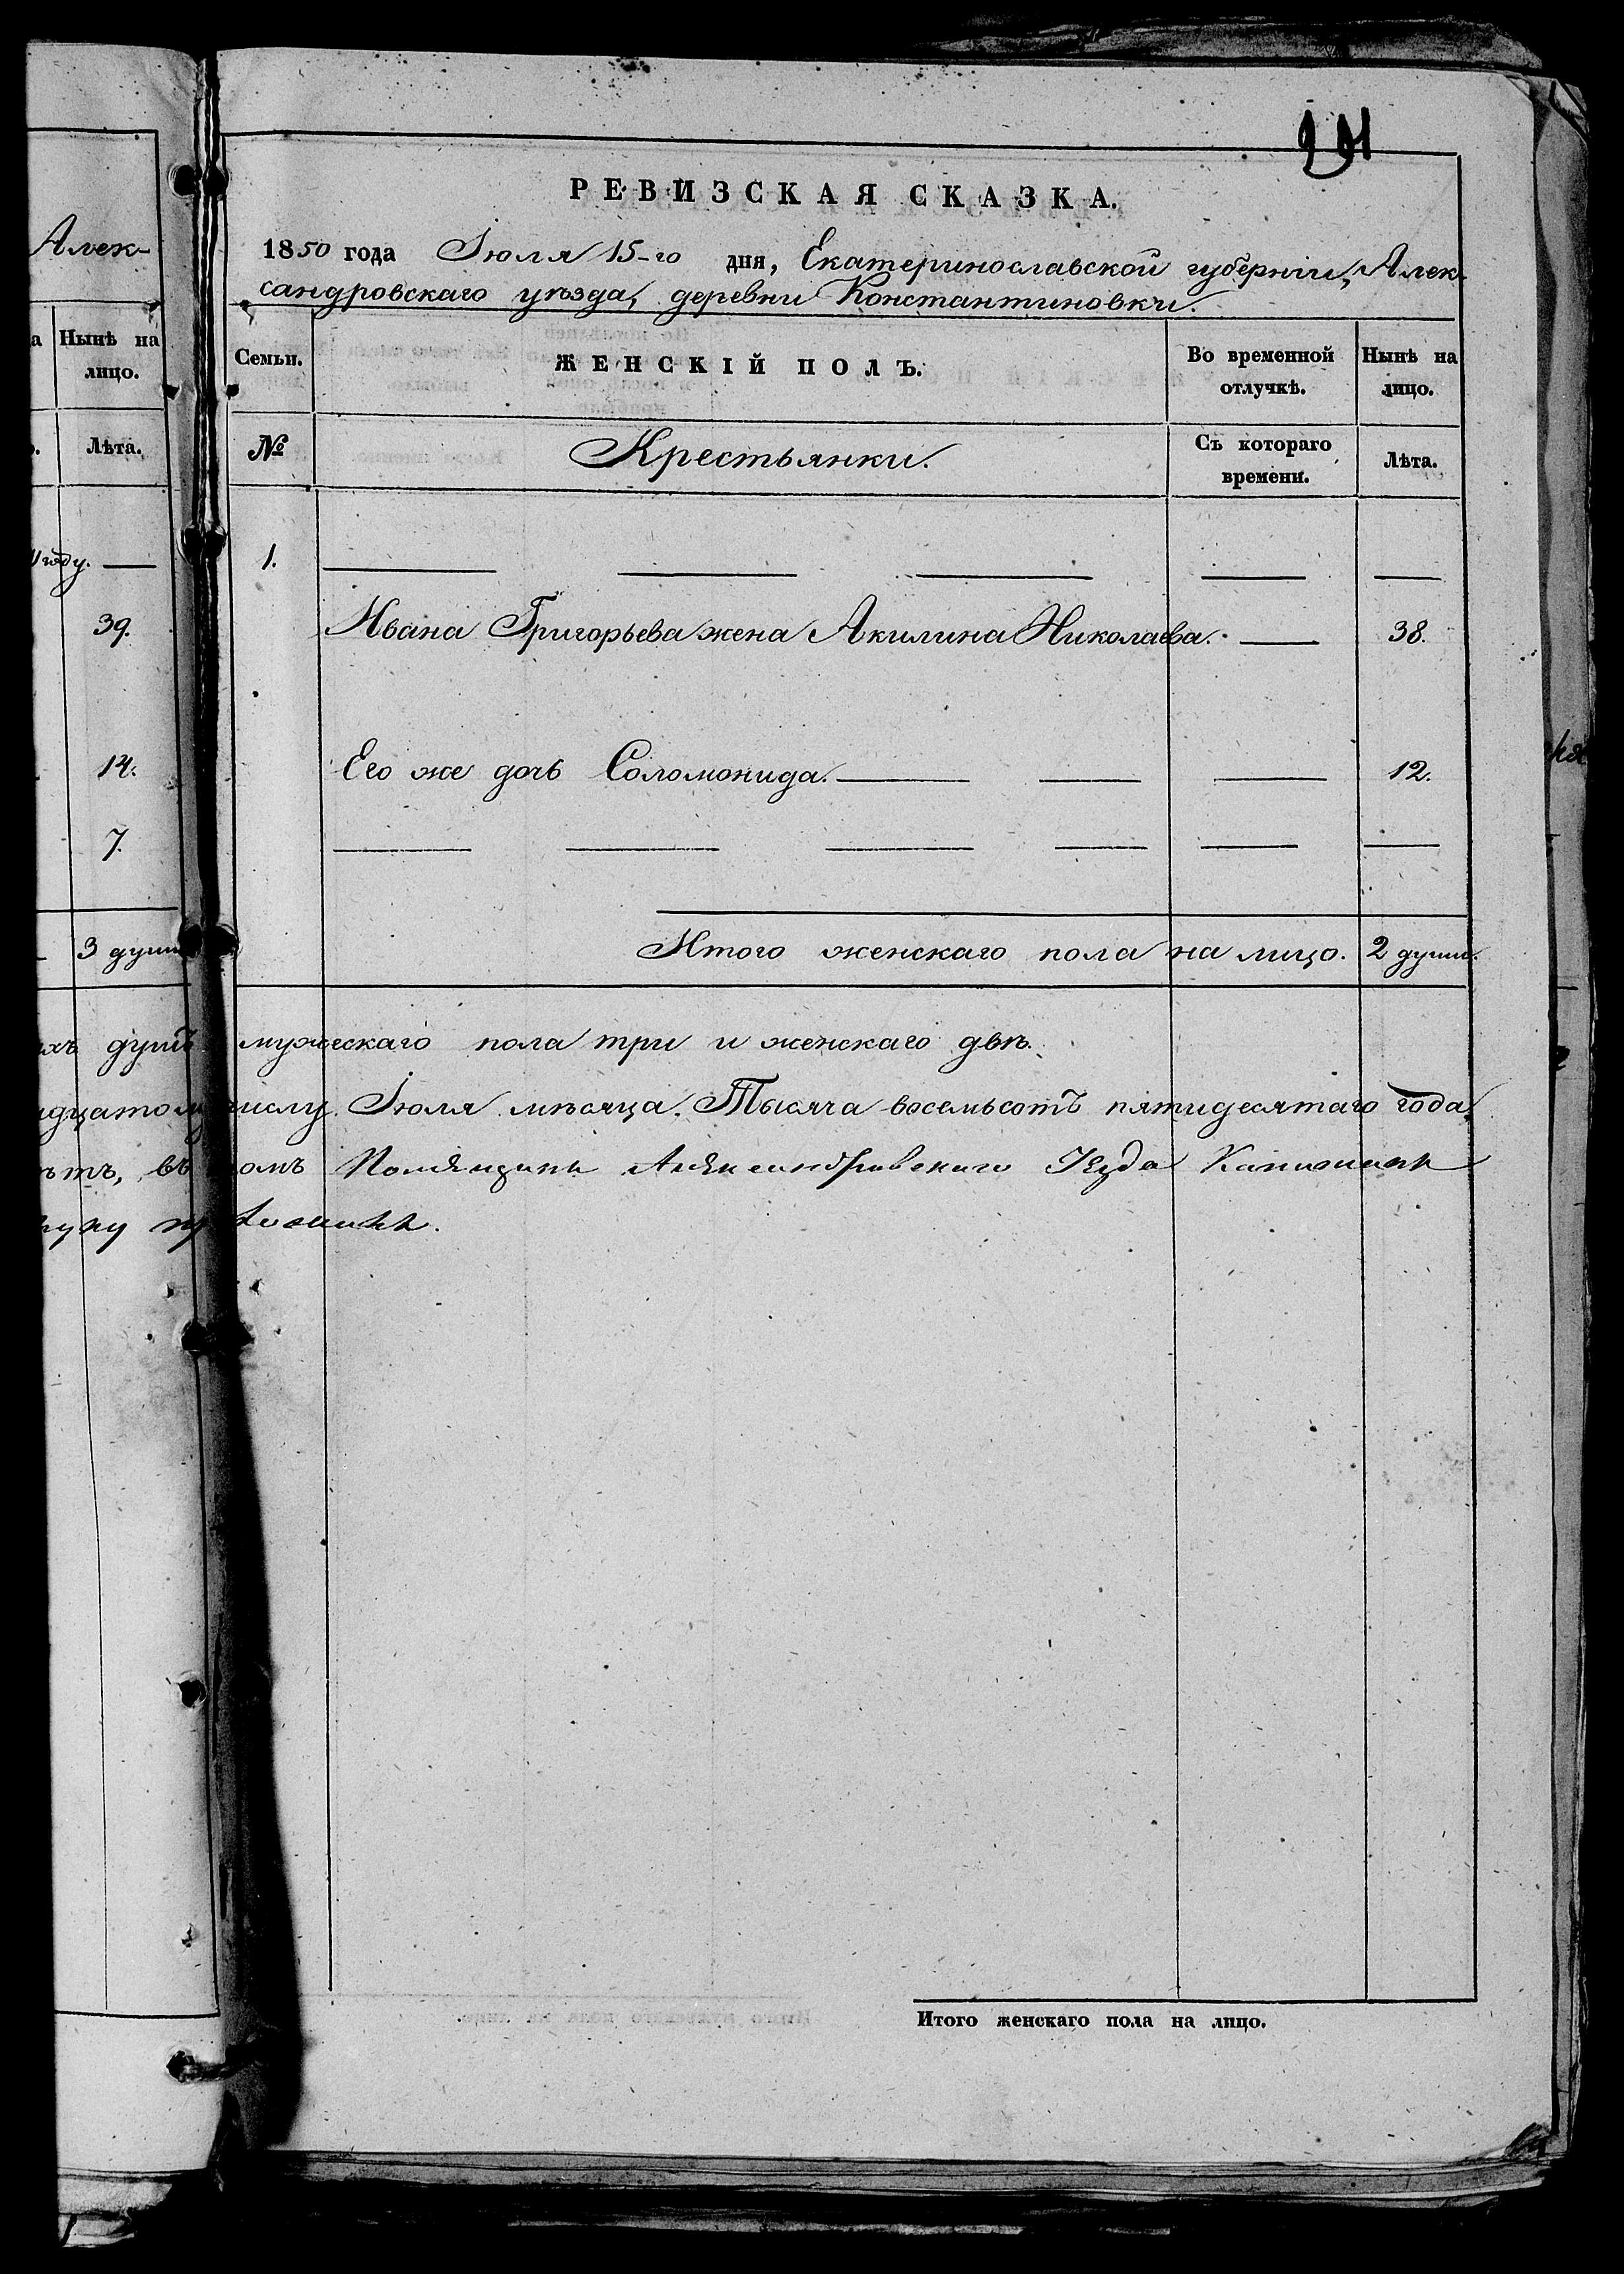 Алек-
Нынѣ на
лицо.
Лѣта.
году. —
39.
14.
7.
3 душъ
РЕВИЗСКАЯ СКАЗКА.
1850 года Іюля 15-го дня, Екатеринославской губерніи, Алек-
сандровскаго уѣзда, деревни Константиновки.
Семьи. ЖЕНСКІЙ ПОЛЪ. Во временной отлучкѣ. Нынѣ на лицо.
№ Крестьянки. Съ котораго времени. Лѣта.
1. — — — — —
Ивана Григорьева жена Акилина Николаева. — 38.
Его же дочь Соломонида. — — — 12.
— — — — — —
Итого женскаго пола на лицо. 2 души.
душъ мужескаго пола три и женскаго двѣ.
числу Іюля мѣсяца, Тысяча восемьсотъ пятидесятаго года,
въ томъ Александровскаго
Итого женскаго пола на лицо.